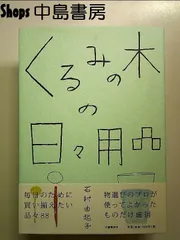 Shops 中島書房
くるみの木
の
日々用品
石村由起子
毎日のために
買い揃えたい
品々88
物選びのプロが
使ってよかった
ものだけ厳選